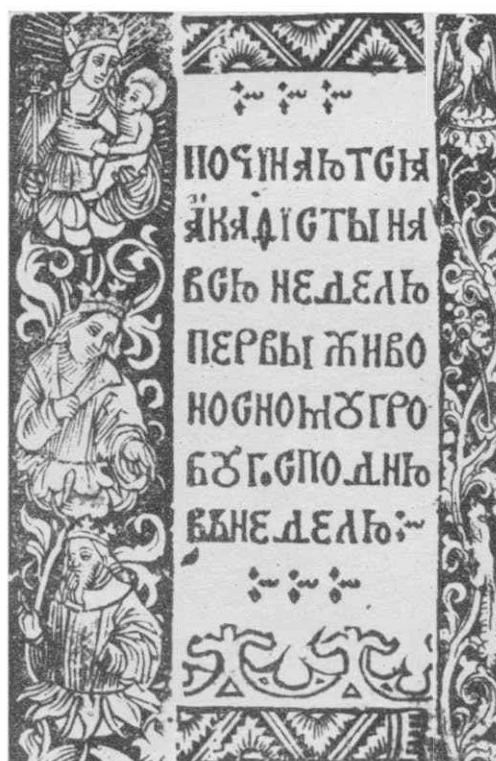 ПОЧІНАЮТСІА
А҆КАѲІСТЫ НА
ВСЮ НЕДЕЛЮ
ПЕРВЫ ЖИВО
НОСНОМꙊ ГРО
БꙊ Г.СПОДНЮ
ВЪНЕДЕЛЮ:~